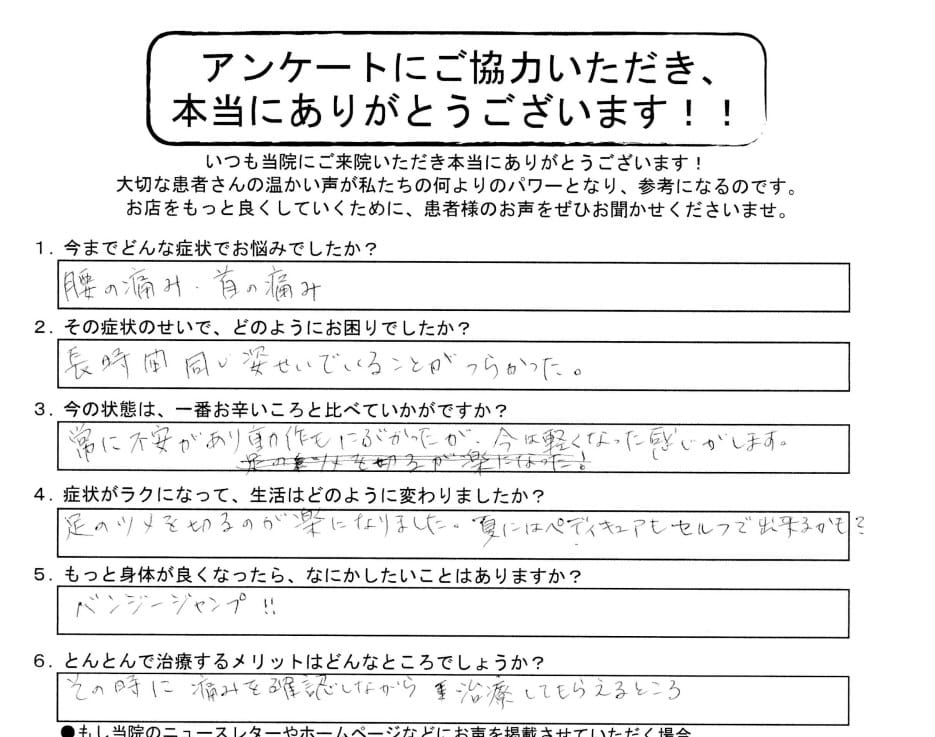 アンケートにご協力いただき、
本当にありがとうございます！！
いつも当院にご来院いただき本当にありがとうございます！
大切な患者さんの温かい声が私たちの何よりのパワーとなり、参考になるのです。
お店をもっと良くしていくために、患者様のお声をぜひお聞かせくださいませ。
１．今までどんな症状でお悩みでしたか？
腰の痛み・首の痛み
２．その症状のせいで、どのようにお困りでしたか？
長時間 同じ姿せいでいることがつらかった。
３．今の状態は、一番お辛いころと比べていかがですか？
常に不安があり動作もにぶかったが、今は軽くなった感じがします。
足のツメを切るが楽になった！
４．症状がラクになって、生活はどのように変わりましたか？
足のツメを切るのが楽になりました。夏にはペディキュアもセルフで出来るかも？
５．もっと身体が良くなったら、なにかしたいことはありますか？
バンジージャンプ!!
６．とんとんで治療するメリットはどんなところでしょうか？
その時に痛みを確認しながら治療してもらえるところ
●もし当院のニュースレターやホームページなどにお声を掲載させていただく場合